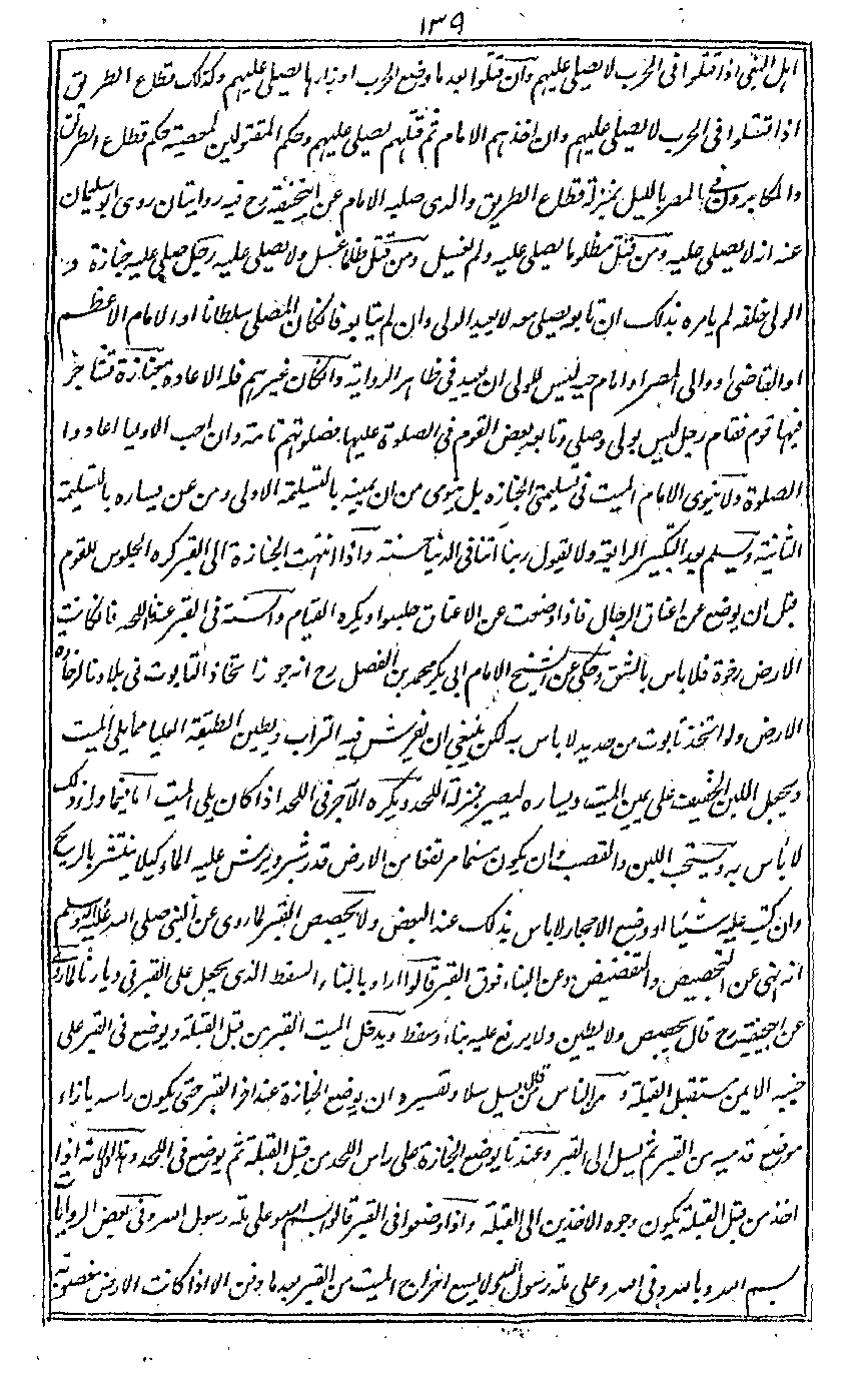 ۱۳۹
اہل البغی اذا قتلوا فی الحرب لا یصلی علیہم وان قتلوا بعد ما وضع الحرب اوزارہا یصلی علیہم وکذلک قطاع الطریق
اذا قتلوا فی الحرب لا یصلی علیہم وان اخذہم الامام ثم قتلہم یصلی علیہم وحکم المقتولین لمعصیۃ حکم قطاع الطریق
والمکابرون فی المصر باللیل بمنزلۃ قطاع الطریق والذی صلبہ الامام عن ابیحنیفۃ رح فیہ روایتان روی ابو سلیمان
عنہ انہ لا یصلی علیہ ومن قتل مظلوما یصلی علیہ ولم یغسل ومن قتل ظالما غسل ولا یصلی علیہ رجل صلی علی جنازۃ و
الولی خلفہ لم یامرہ بذلک ان تابعہ یصلی معہ لا یعید الولی وان لم یتابعہ فان کان المصلی سلطانا او الامام الاعظم
او القاضی او والی المصر او امام حیہ لیس للولی ان یعید فی ظاہر الروایۃ وان کان غیرہم فلہ الاعادہ جنازۃ تشاجر
فیہا قوم فقام رجل لیس بولی وصلی وتابعہ بعض القوم فی الصلوۃ علیہا فصلوتہم تامۃ وان احب الاولیاء اعادوا
الصلوۃ ولا ینوی الامام المیت فی تسلیمتی الجنازہ بل ینوی من عن یمینہ بالتسلیمۃ الاولی ومن عن یسارہ بالتسلیمۃ
الثانیۃ ویسلم بعد التکبیر الرابعۃ ولا یقول ربنا اتنا فی الدنیا حسنۃ واذا انتہت الجنازۃ الی القبر کرہ الجلوس للقوم
قبل ان یوضع عن اعناق الرجال فاذا وضعت عن الاعناق جلسوا ویکرہ القیام والسنۃ فی القبر عندنا اللحد فان کانت
الارض رخوۃ فلا باس بالشق وحکی عن الشیخ الامام ابی بکر محمد بن الفضل رح انہ جوز اتخاذ التابوت فی بلادنا لرخاوۃ
الارض ولو اتخذ تابوت من حدید لا باس بہ لکن ینبغی ان یفرش فیہ التراب ویطین الطبقۃ العلیا مما یلی المیت
ویجعل اللبن الخفیف علی یمین المیت ویسارہ لیصیر بمنزلۃ اللحد ویکرہ الآجر فی اللحد اذا کان یلی المیت اما فیما وراء ذلک
لا باس بہ ویستحب اللبن والقصب وان یکون مسنما مرتفعا من الارض قدر شبر ویرش علیہ الماء کیلا ینتشر بالریح
وان کتب علیہ شیئا او وضع الاحجار لا باس بذلک عند البعض ولا یجصص القبر لما روی عن النبی صلی اللہ علیہ وسلم
انہ نہی عن التجصیص والتقضیض وعن البناء فوق القبر قالوا اراد بالبناء السقط الذی یجعل علی القبر فی دیارنا لما روی
عن ابیحنیفۃ رح قال یجصص ولا یطین ولا یرفع علیہ بناء وسقط ویدخل المیت القبر من قبل القبلۃ ویوضع فی القبر علی
جنبہ الایمن مستقبل القبلۃ ومن الناس من قال یسل سلا وتفسیرہ ان یوضع الجنازۃ عند اخر القبر حتی یکون راسہ بازاء
موضع قدمیہ من القبر ثم یسل الی القبر وعندنا یوضع الجنازۃ علی راس اللحد من قبل القبلۃ ثم یوضع فی اللحد وہذا اولی لانہ اذا
اخذ من قبل القبلۃ یکون وجوہ الاخذین الی القبلۃ واذا وضعوا فی القبر قالوا بسم اللہ وعلی ملۃ رسول اللہ وفی بعض الروایات
بسم اللہ وباللہ وفی اللہ وعلی ملۃ رسول اللہ ولا یسع اخراج المیت من القبر بعد ما دفن الا اذا کانت الارض مغصوبۃ